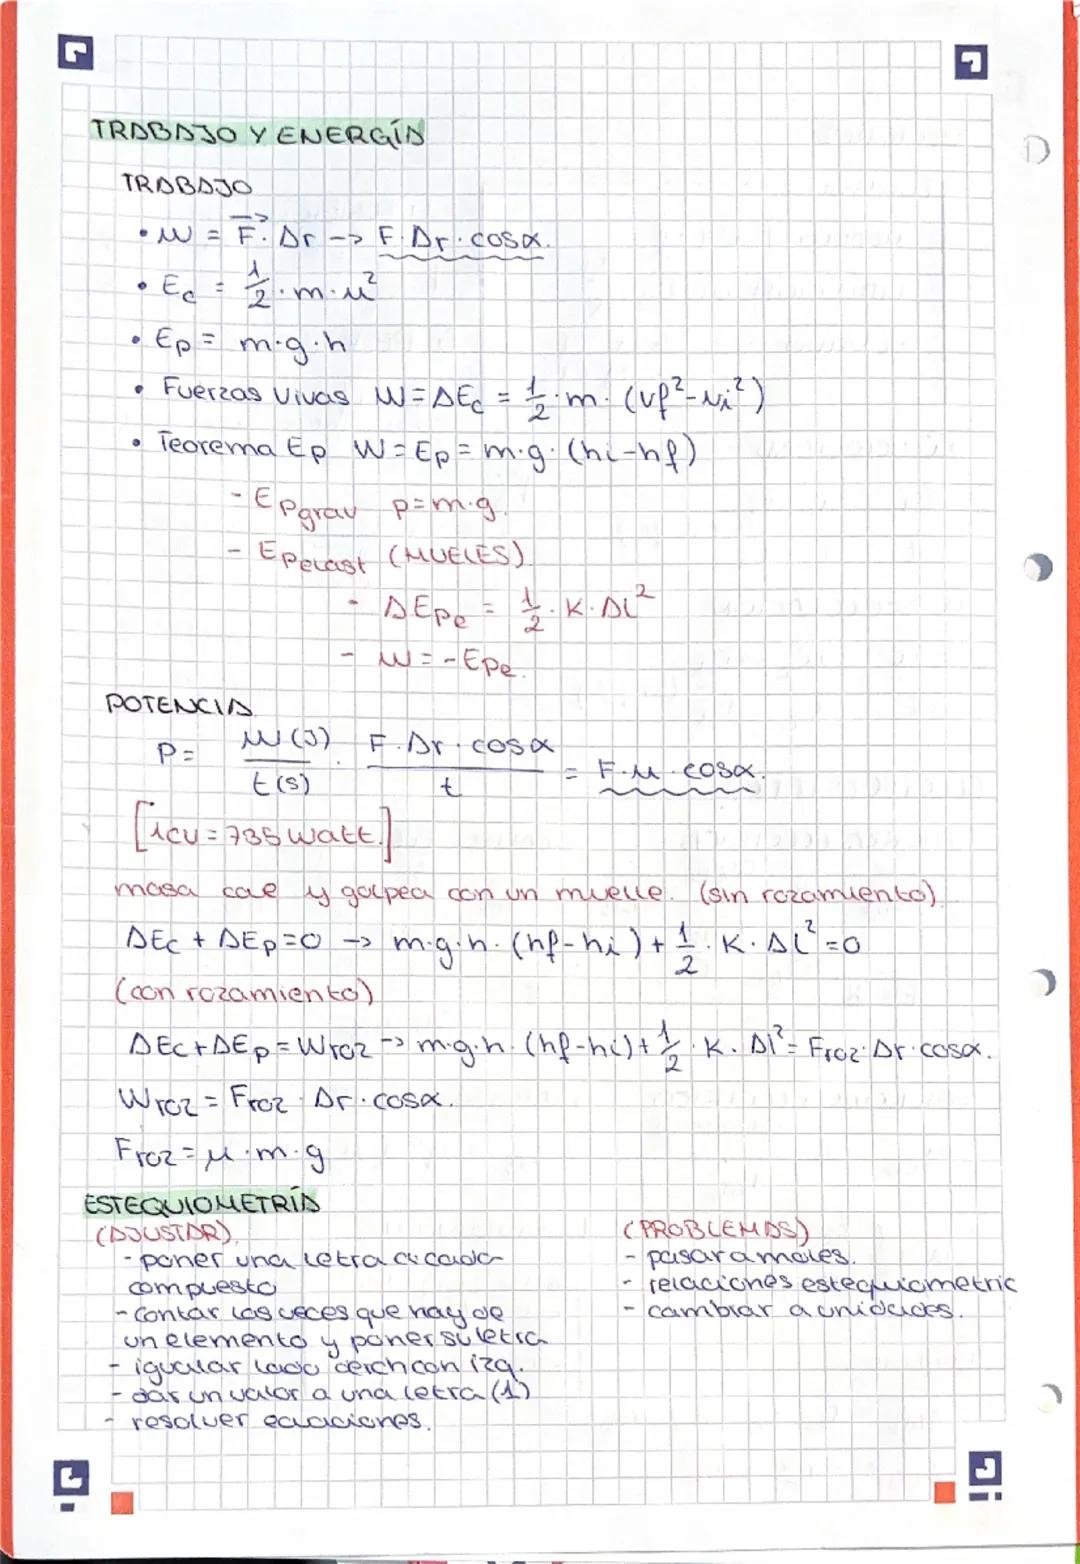 TRABAJO Y ENERGÍA
TRABAJO
• W = F⃗ · Δr -> F · Δr · cosα.
• Ec = 1/2 · m · v²
• Ep = m·g·h
• Fuerzas Vivas W = ΔEc = 1/2 · m · (vf² - vi²)
• Teorema Ep W = Ep = m·g· (hi - hf)
- Epgrav p = m·g.
- Epelast (MUELES).
- ΔEpe = 1/2 · K · ΔL²
- W = - Epe.
POTENCIA
P = W (J) / t (s) · F · Δr · cosα / t = F · v · cosα.
[1cv = 735 watt.]
masa cae y golpea con un muelle. (sin rozamiento)
ΔEc + ΔEp = 0 -> m·g·h· (hf - hi) + 1/2 · K · ΔL² = 0
(con rozamiento)
ΔEc + ΔEp = Wroz -> m·g·h· (hf - hi) + 1/2 · K · Δl² = Froz · Δr · cosα.
Wroz = Froz · Δr · cosα.
Froz = μ · m · g
ESTEQUIOMETRÍA
(AJUSTAR).
- poner una letra a cada
compuesto
- contar las veces que hay de
un elemento y poner su letra
- igualar lado derch con izq.
- dar un valor a una letra (1)
- resolver ecuaciones.
(PROBLEMAS)
- pasar a moles.
- relaciones estequiometric
- cambiar a unidades.